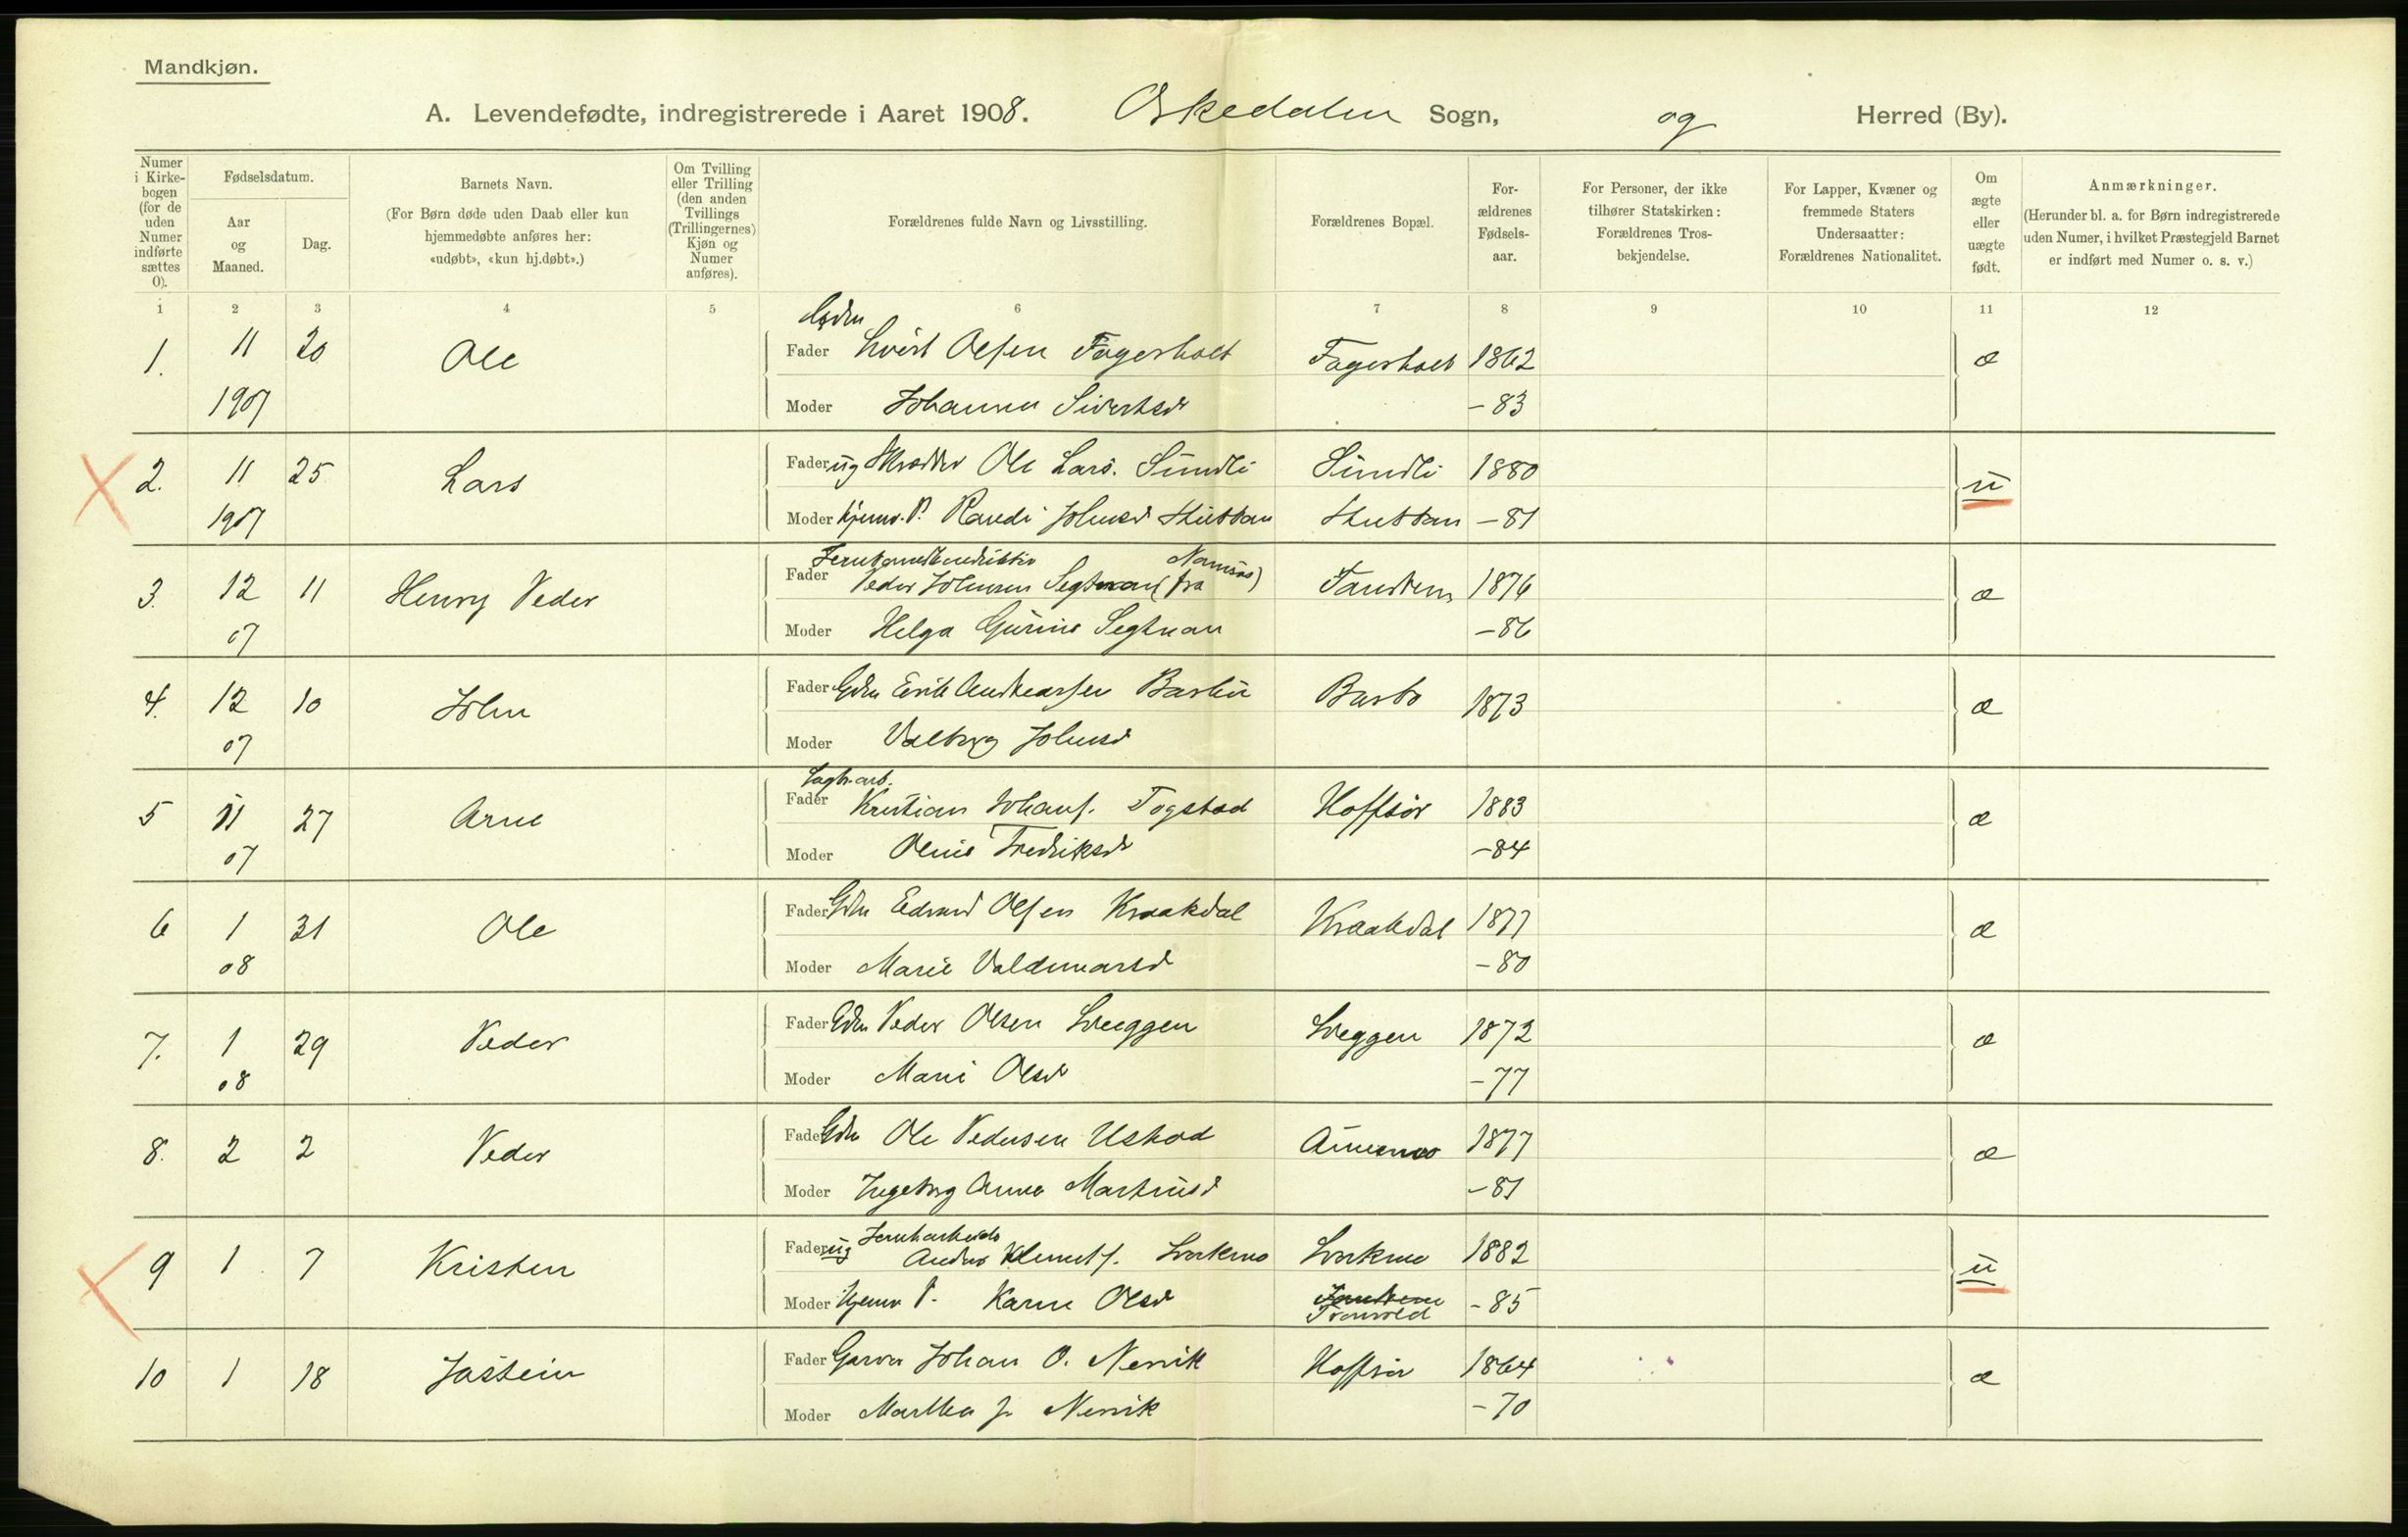 Mandkjøn.
A. Levendefødte, indregistrerede i Aaret 1908. Orkedalen Sogn, og Herred (By).
Numer i Kirkebogen (for de uden Numer indførte sættes 0).
Fødselsdatum.
Aar og Maaned.
Dag.
Barnets Navn.
(For Børn døde uden Daab eller kun hjemmedøbte anføres her: «udøbt», «kun hj.døbt».)
Om Tvilling eller Trilling (den anden Tvillings (Trillingernes) Kjøn og Numer anføres).
Forældrenes fulde Navn og Livsstilling.
Forældrenes Bopæl.
Forældrenes Fødselsaar.
For Personer, der ikke tilhører Statskirken: Forældrenes Trosbekjendelse.
For Lapper, Kvæner og fremmede Staters Undersaatter: Forældrenes Nationalitet.
Om ægte eller uægte født.
Anmærkninger.
(Herunder bl. a. for Børn indregistrerede uden Numer, i hvilket Præstegjeld Barnet er indført med Numer o. s. v.)
1 2 3 4 5 6 7 8 9 10 11 12
1. 11 20 Ole Fader Sivert Olsen Fagerholt Fagerholt 1862 æ
1907 Moder Johanna Sivertsd - 83
2. 11 25 Lars Fader ug Skrædder Ole Lars. Sundli Sundli 1880 u
1907 Moder hjemv. P. Randi Johnsd - 81
3. 12 11 Henry Peder Fader Peder Johnsen Segtnan (fra Namsos) 1876 æ
07 Moder Helga Segtnan - 86
4. 12 10 John Fader Gdm Erik Andreassen Barbu Barbo 1873 æ
07 Moder Valborg Johnsd
5 11 27 Arne Fader Kristian Johans. Togstad 1883 æ
07 Moder Fredriksd - 84
6 1 31 Ole Fader Gdm Edvard Olsen Kraakdal Kraakdal 1877 æ
08 Moder Marie Valdemarsd - 80
7. 1 29 Peder Fader Gdm Peder Olsen 1872 æ
08 Moder Marie Olsd - 77
8. 2 2 Peder Fader Gdm Ole Pedersen 1877 æ
Moder Ingeborg Anna - 81
9 1 7 Kristen Fader ug Jernbarbeider Anders Klemets. 1882 u
Moder Hjemv P. Karen Olsd - 85
10 1 18 Jostein Fader Garver Johan O. Nervik 1864 æ
Moder Martha J. Nervik - 70